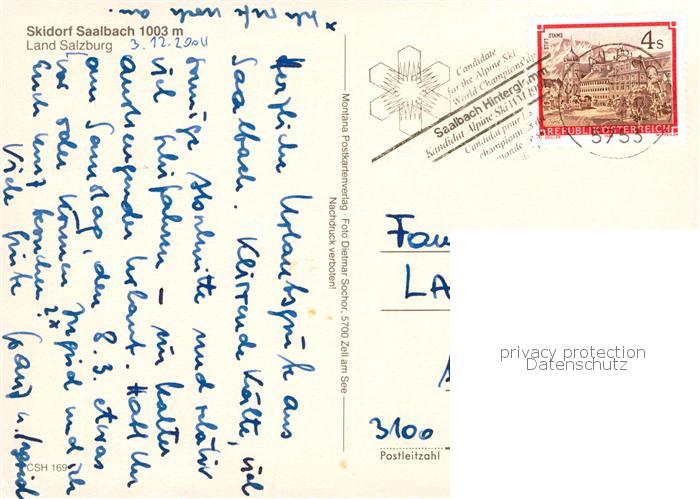 Skidorf Saalbach 1003 m
Land Salzburg
3.12.2004
Herzliche Urlaubsgrüße aus
Saalbach. Klirrende Kälte, viel
sonnige Abschnitte und relativ
viel Skifahren – ein kalter
anstrengender Urlaub. Habt Ihr
am Samstag, den 8.3. etwas
vor oder können Ingrid und ich
Euch kurz besuchen?*
Viele Grüße Franz u. Ingrid
* Ich rufe noch an.
CSH 169
Montana Postkartenverlag · Foto Dietmar Sochor, 5700 Zell am See
Nachdruck verboten!
Candidate
for the Alpine Ski
World Championship
Saalbach Hinterglemm
Kandidat Alpine Ski WM
Candidat pour
STIFT STAMS
4 S
REPUBLIK ÖSTERREICH
5753
Fam
LA
3100
Postleitzahl
privacy protection
Datenschutz